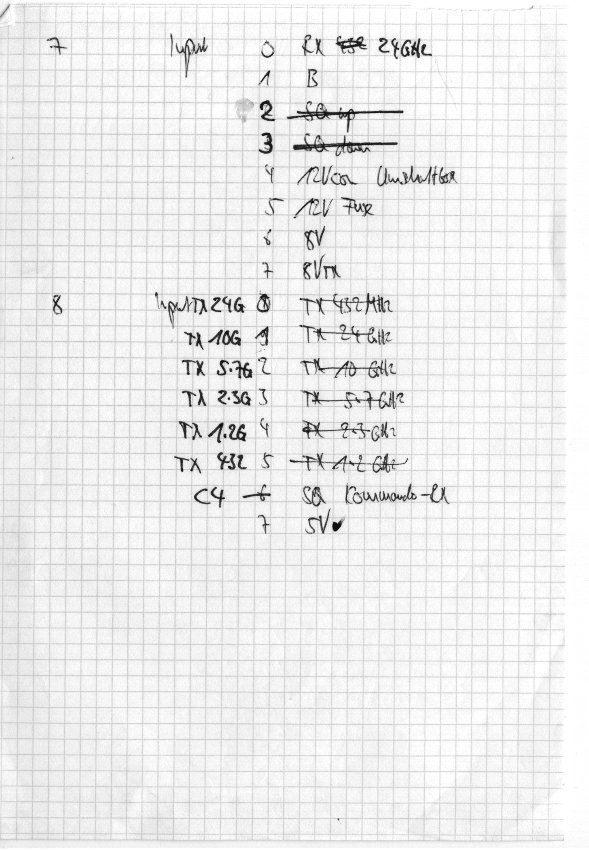 7 Input 0 RX 432 24GHz
1 B
2 SQ up
3 SQ down
4 12V
5 12V Fuse
6 8V
7 8VTX
8 Input TX 24G 0 TX 432 MHz
TX 10G 1 TX 24 GHz
TX 5.7G 2 TX 10 GHz
TX 2.3G 3 TX 5.7 GHz
TX 1.2G 4 TX 2.3 GHz
TX 432 5 TX 1.2 GHz
C4 6 SQ Kommando-RX
7 5V